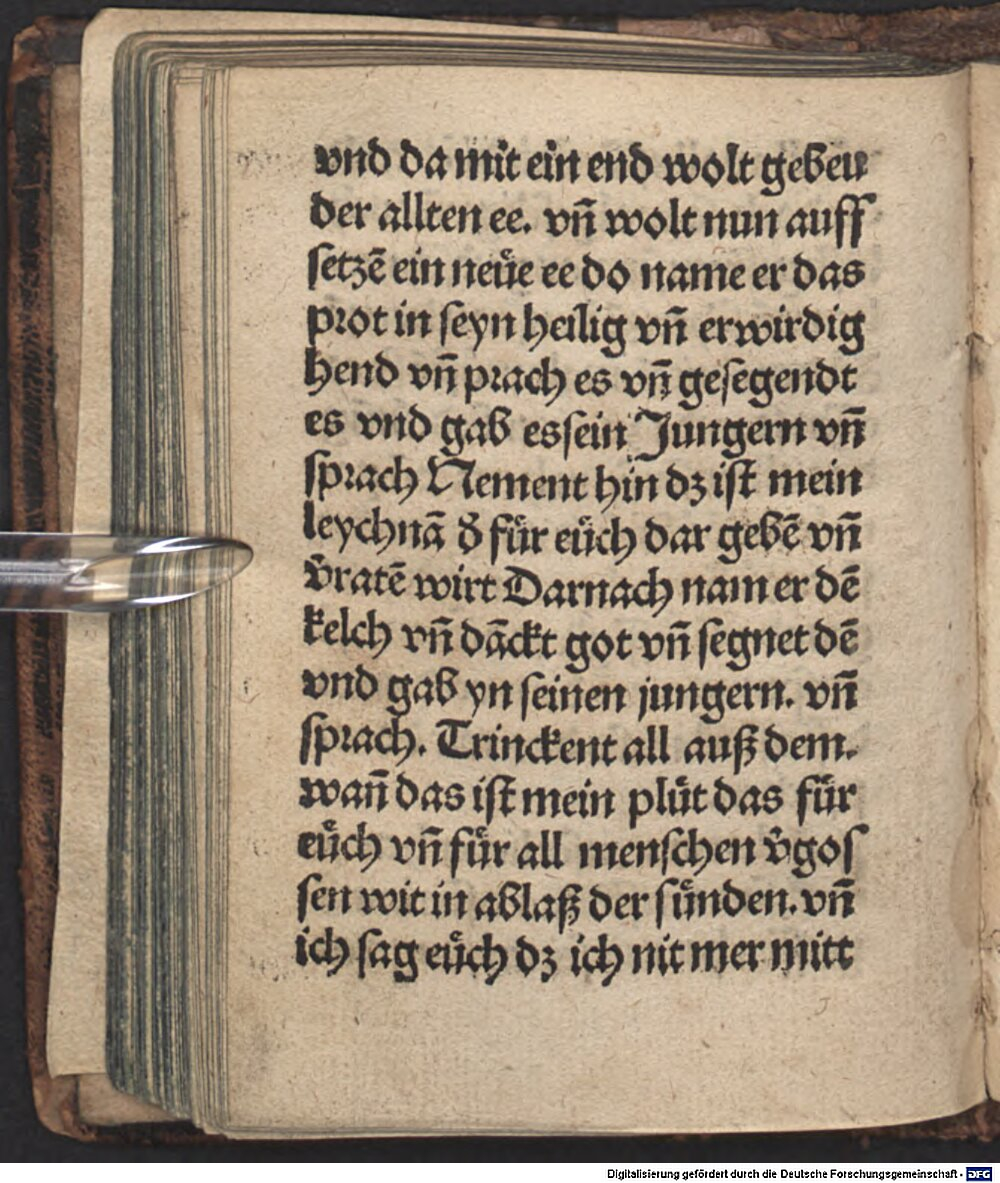 vnd da mit ein end wolt geben
der allten ee. vn̄ wolt nun auff
ſetzē ein neüe ee do name er das
prot in ſeyn heilig vn̄ erwirdig
hend vn̄ prach es vn̄ geſegendt
es vnd gab es ſein Jungern vn̄
ſprach Nement hin dz iſt mein
leychnā d̄ für eüch dar gebē vn̄
v̄ratē wirt Darnach nam er dē
kelch vn̄ dāckt got vn̄ ſegnet dē
vnd gab yn ſeinen jungern. vn̄
ſprach. Trinckent all auß dem.
wan̄ das iſt mein plůt das für
eüch vn̄ für all menſchen v̄goſ
ſen wit in ablaß der ſünden. vn̄
ich ſag eüch dz ich nit mer mitt
Digitalisierung gefördert durch die Deutsche Forschungsgemeinschaft - DFG